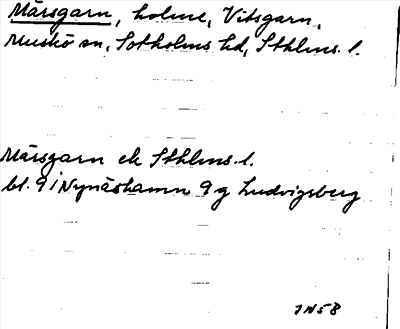 Märsgarn, holme, Vitsgarn,
Muskö sn, Sotholms hd, Sthlms. l.
Märsgarn ek Sthlms. l.
bl. 9 i Nynäshamn 9 g Ludvigsberg
JN58